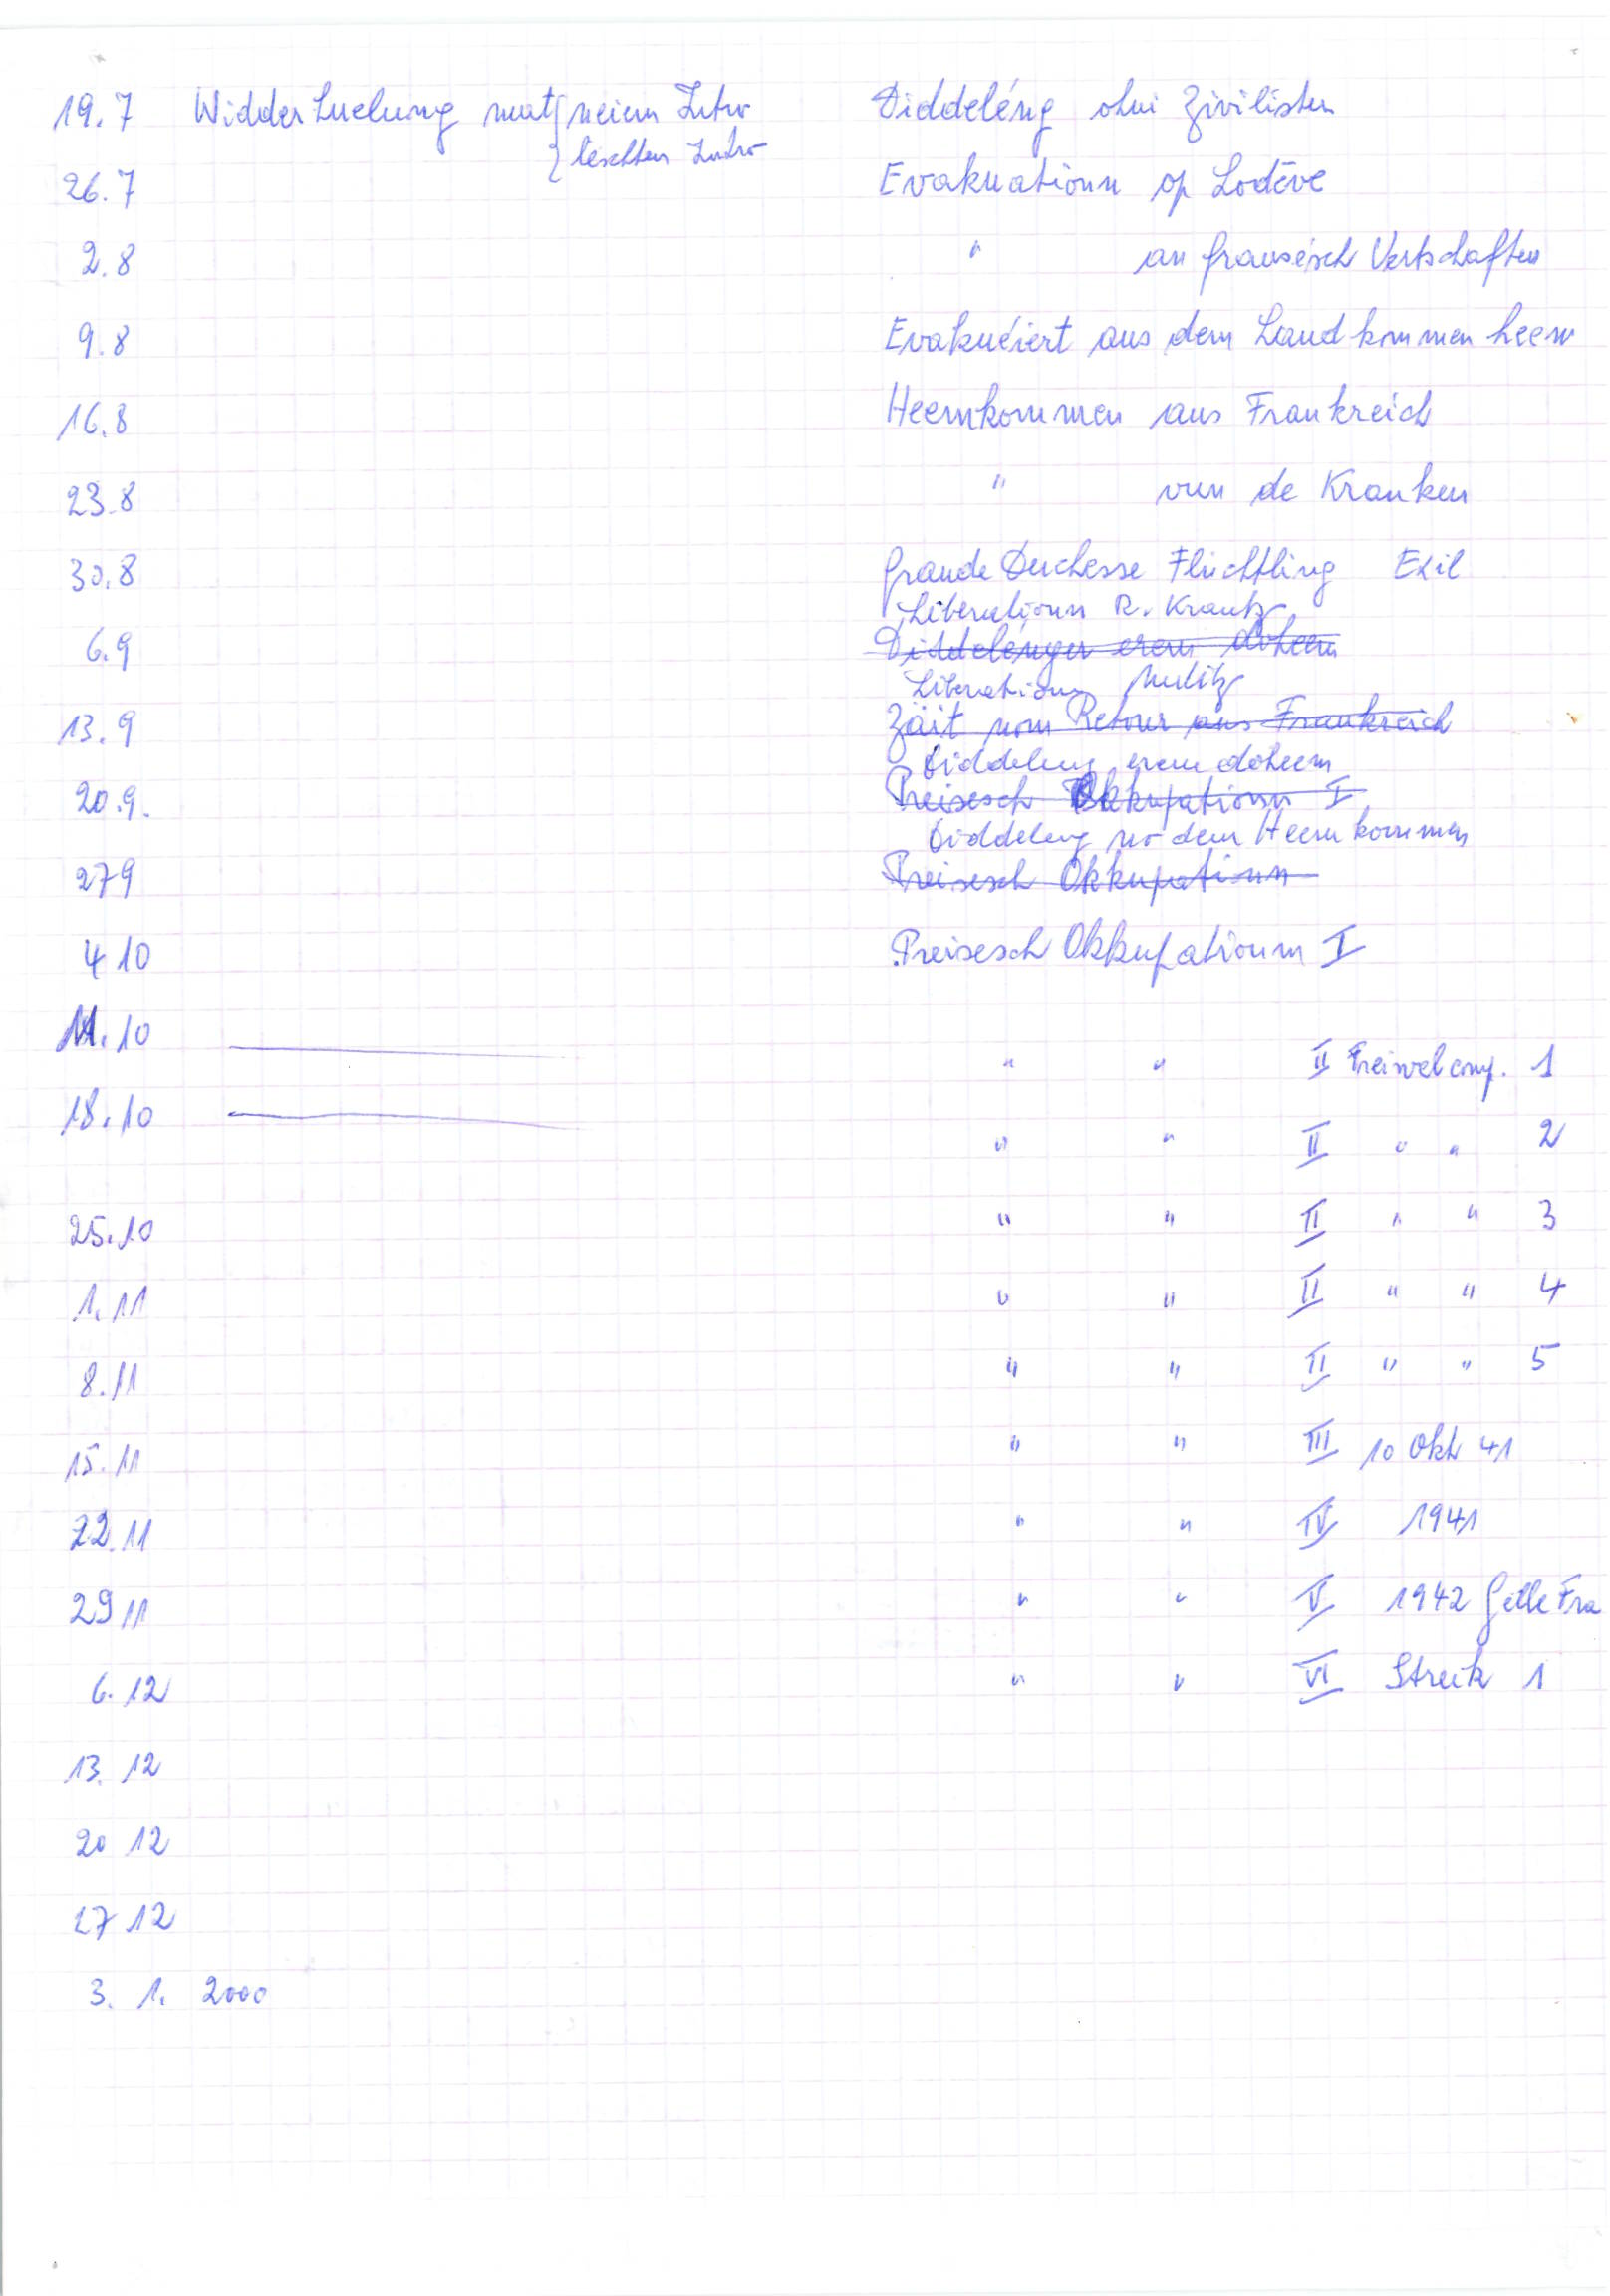 19.7 Widderhuelung mat { neiem Intro Diddeléng ohni Zivilisten
{ leschten Intro
26.7 Evakuatioun op Lodève
2.8 " an franséisch Uertschaften
9.8 Evakuéiert aus dem Land kommen heem
16.8 Heemkommen aus Frankreich
23.8 " vun de Kranken
30.8 Grande Duchesse Flüchtling Exil
Liberatioun R. Krantz
6.9 Diddelénger erem doheem
Liberatioun
13.9 Zäit vom Retour aus Frankreich
Diddeleng erem doheem
20.9. Preisesch Okkupatioun I
Diddeleng no dem Heemkommen
279 Preisesch Okkupatioun
4 10 Preisesch Okkupatioun I
11.10 " " II Freiwelcomp. 1
18.10 " " II " " 2
25.10 " " II " " 3
1.11 " " II " " 4
8.11 " " II " " 5
15.11 " " III 10 Okt 41
22.11 " " IV 1941
29 11 " " V 1942 Gëlle Fra
6.12 " " VI Streik 1
13. 12
20 12
27 12
3. 1. 2000